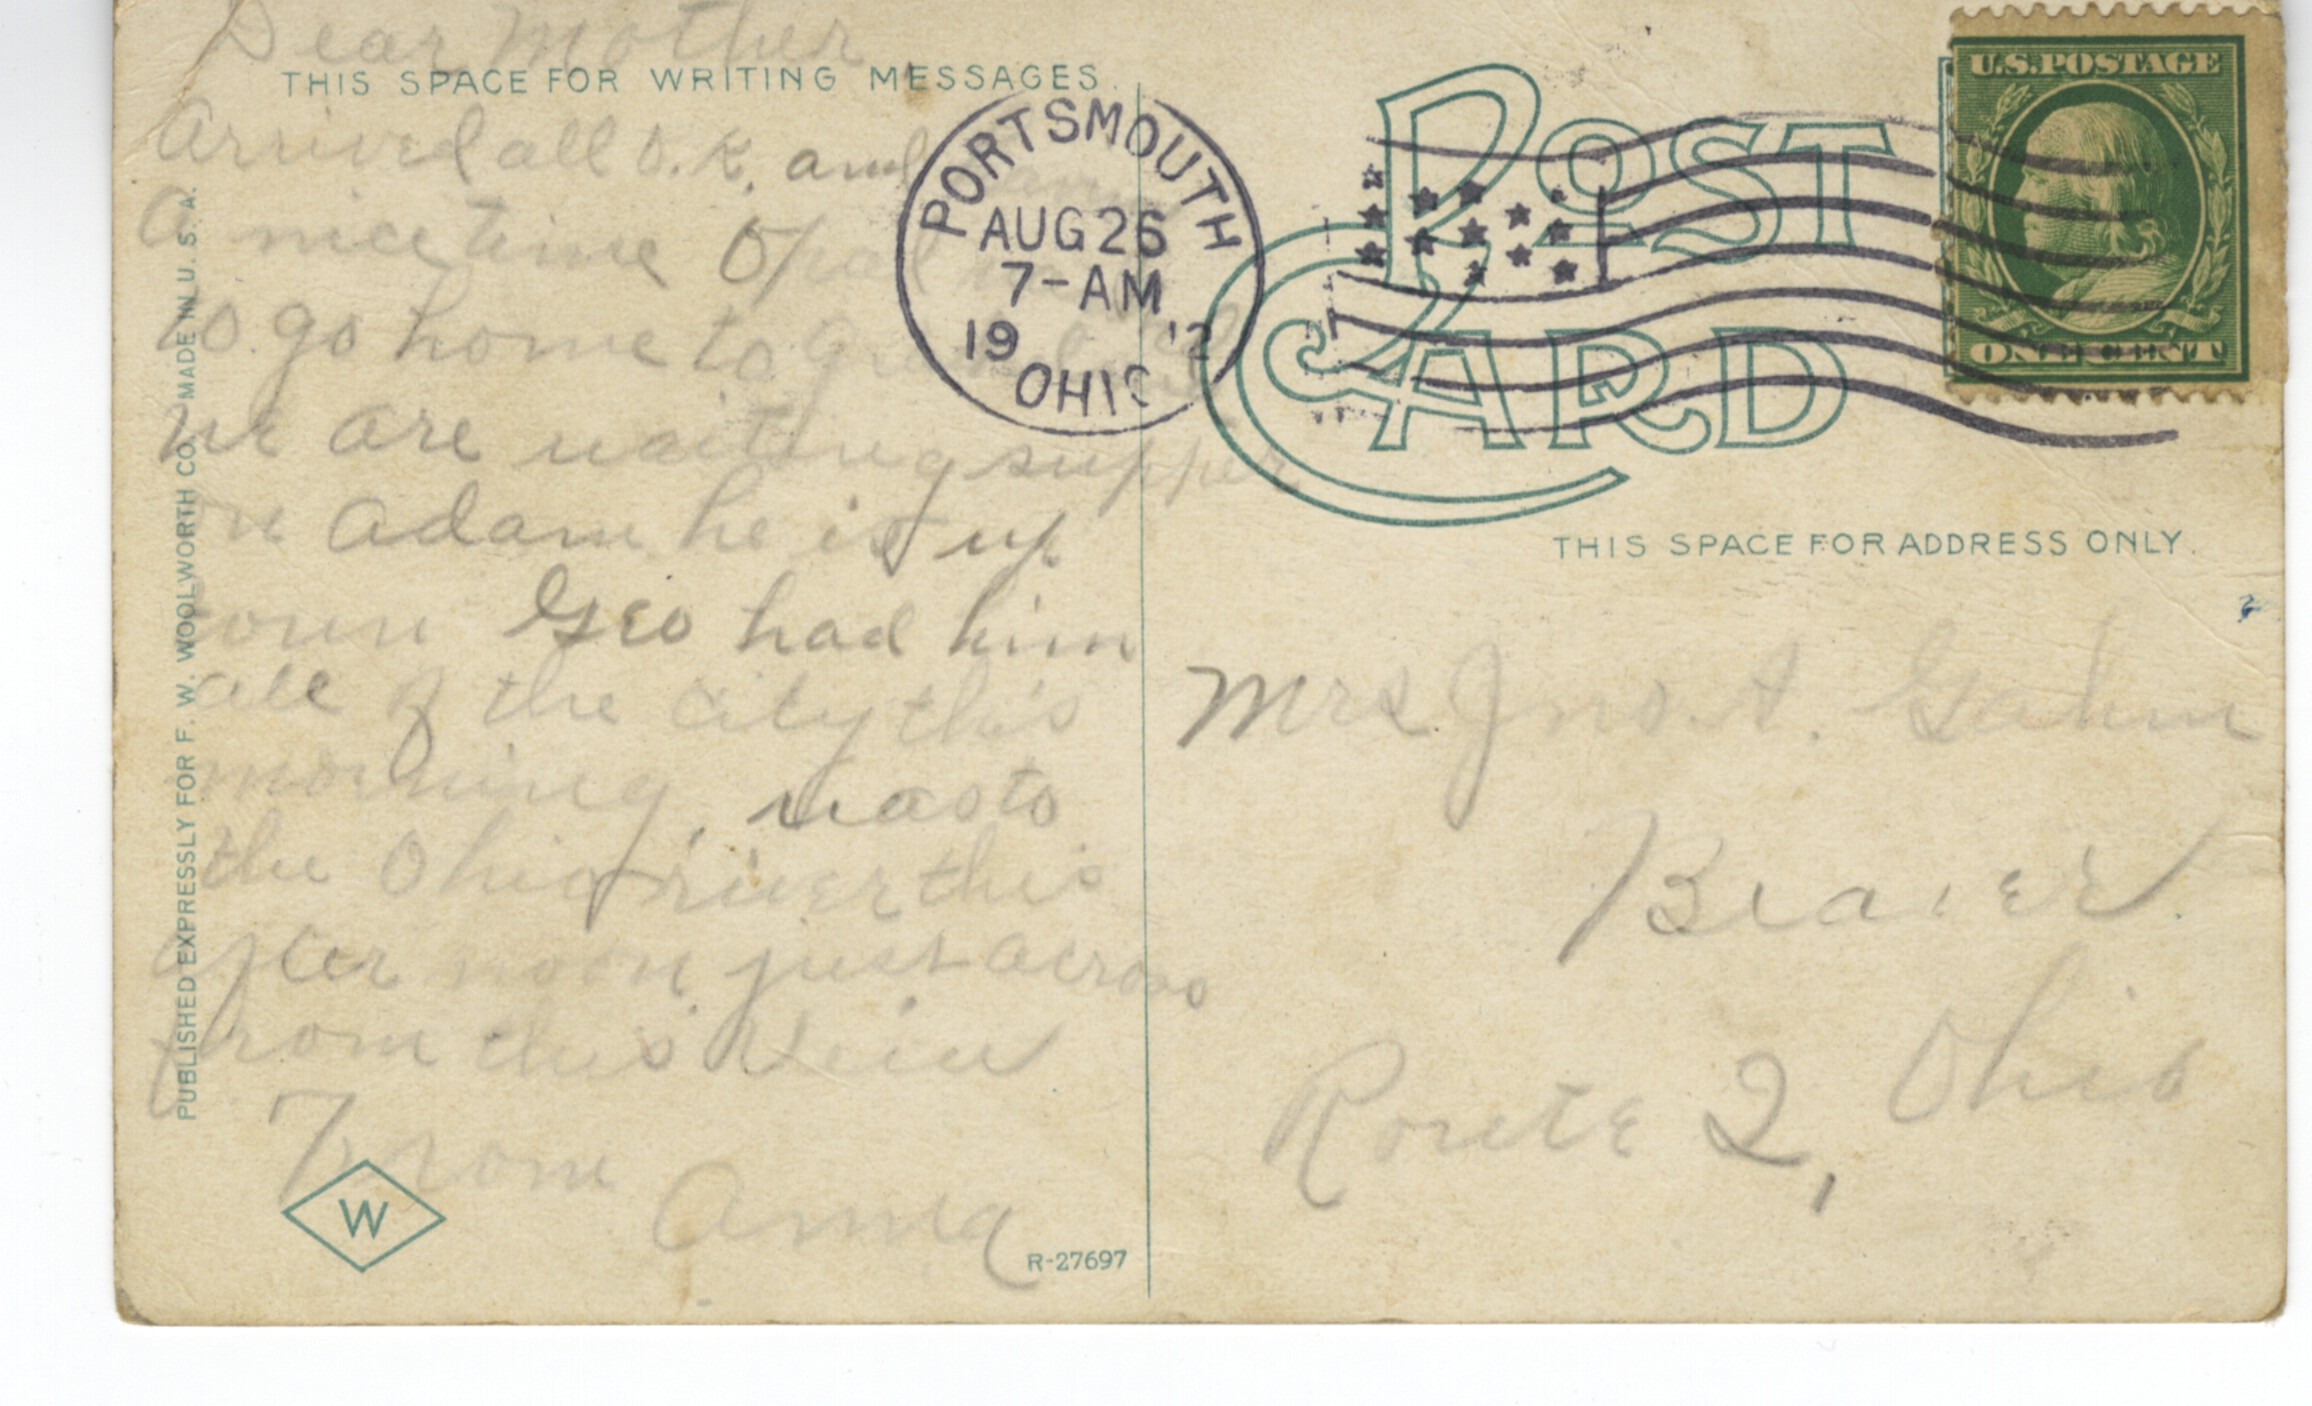 Dear Mother
THIS SPACE FOR WRITING MESSAGES.
Arrived all O.K. and
a nice time Opal
to go home to
we are waiting supper
on Adam he is up
town Geo had him
all of the city this
morning, was to
the Ohio river this
after noon just across
from this View
From
Anna
W
R-27697
PUBLISHED EXPRESSLY FOR F. W. WOOLWORTH CO. MADE IN U. S. A.
PORTSMOUTH
AUG 26
7-AM
19 12
OHIO
POST CARD
U.S. POSTAGE
ONE CENT
THIS SPACE FOR ADDRESS ONLY.
Mrs Jno. A. Gahm
Beaver
Ohio
Route 2,